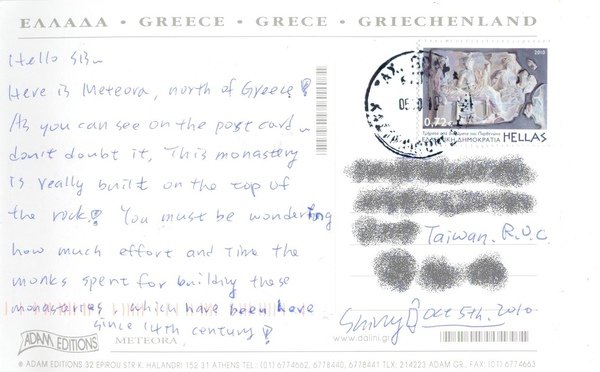 ΕΛΛΑΔΑ • GREECE • GRECE • GRIECHENLAND
Hello
Here is Meteora, north of Greece!
As you can see on the post card~
don't doubt it, This monastery
is really built on the top of
the rock! You must be wondering
how much effort and time the
monks spent for building these
monasteries, which have been here
since 14th century!
2010
0,72€
Τμήματα από
της Παρθενώνα
ΕΛΛΗΝΙΚΗ ΔΗΜΟΚΡΑΤΙΑ HELLAS
Taiwan. R.O.C.
Oct 5th. 2010
www.dalini.gr
ADAM EDITIONS METEORA
® ADAM EDITIONS 32 EPIROU STR K. HALANDRI 152 31 ATHENS TEL.: (01) 6774662, 6778440, 6778441 TLX: 214223 ADAM GR., FAX: (01) 6774663